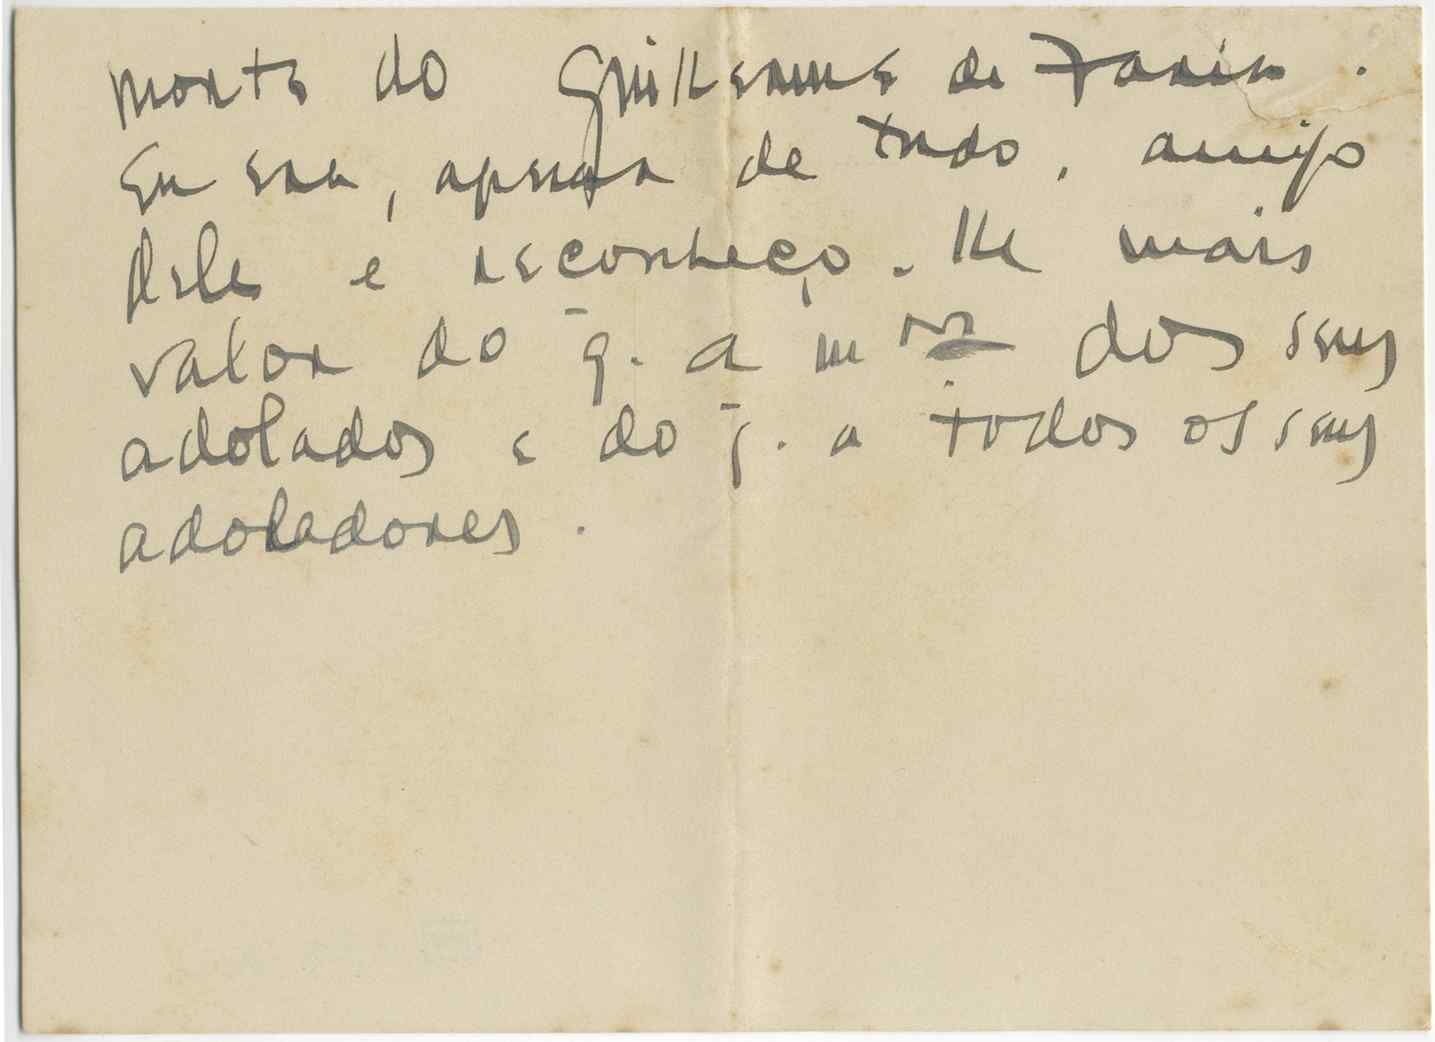 morte do Guilherme de Faria.
Eu era, apesar de tudo, amigo
dele e reconheço-lhe mais
valor do q̄. a mor pte dos seus
adolados e do q̄. a todos os seus
adoladores.